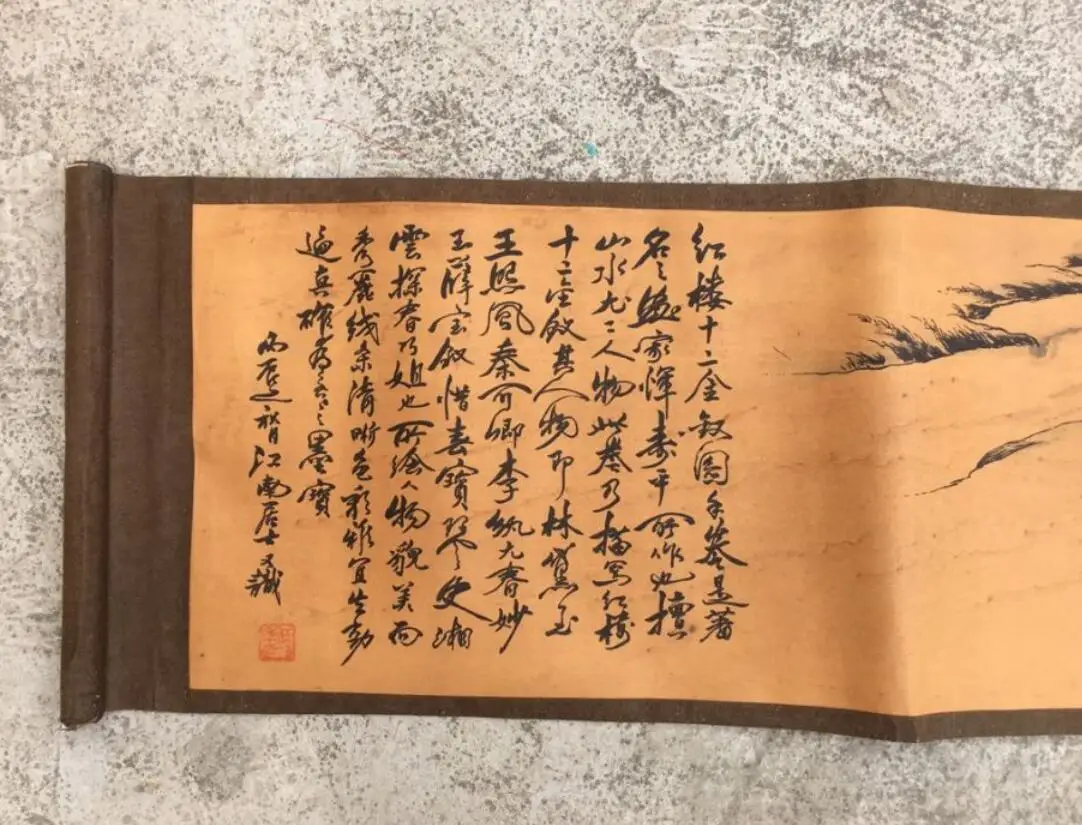 红楼十二金钗图手卷是著
名之画家恽寿平所作也擅
山水尤工人物此卷乃描写红楼
十二金钗其人物即林黛玉
王熙凤秦可卿李纨元春妙
玉薛宝钗惜春寶琴史湘
雲探春乃姐也所绘人物貌美而
秀麗线条清晰色彩雅宜生动
逼真確為之墨寶
丙辰秋月江南居士又識